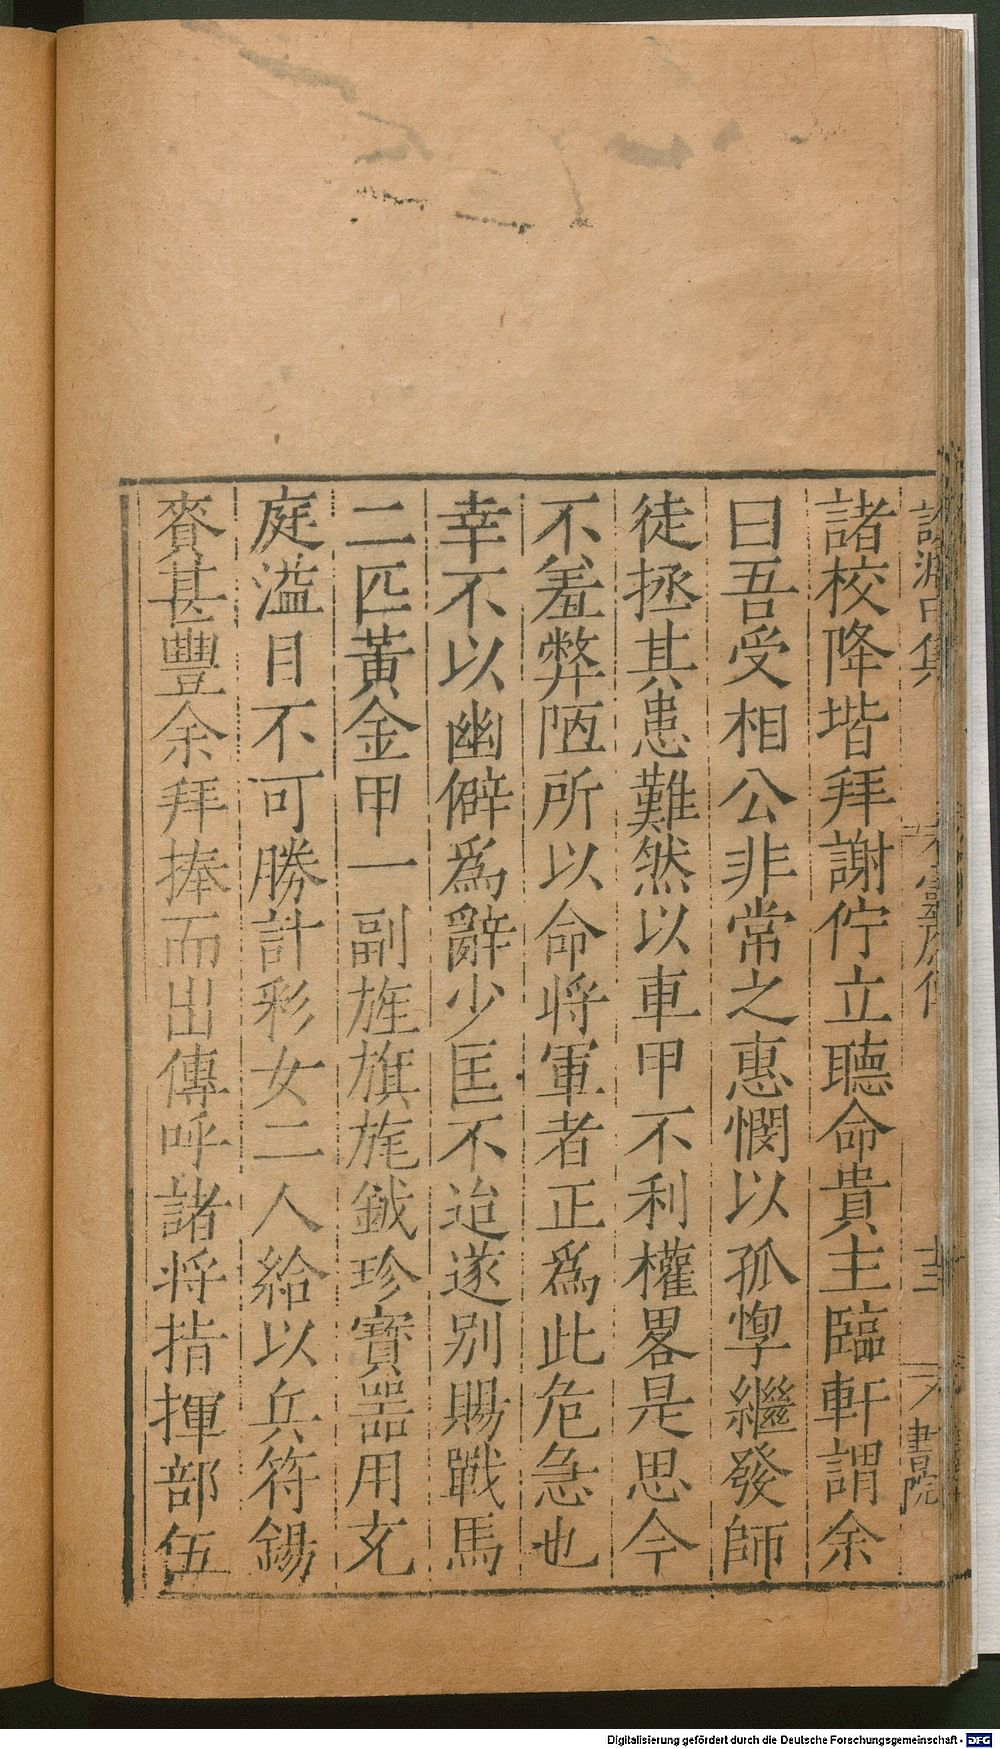 諸校降堦拜謝佇立聽命貴主臨軒謂余
曰吾受相公非常之惠憫以孤惸繼發師
徒拯其患難然以車甲不利權畧是思今
不羞弊陋所以命将軍者正爲此危急也
幸不以幽僻爲辭少匡不迨遂别賜戰馬
二匹黃金甲一副旌旗旄鉞珍寶器用充
庭溢目不可勝計彩女二人給以兵符錫
賚甚豐余拜捧而出傳呼諸将指揮部伍
Digitalisierung gefördert durch die Deutsche Forschungsgemeinschaft - DFG